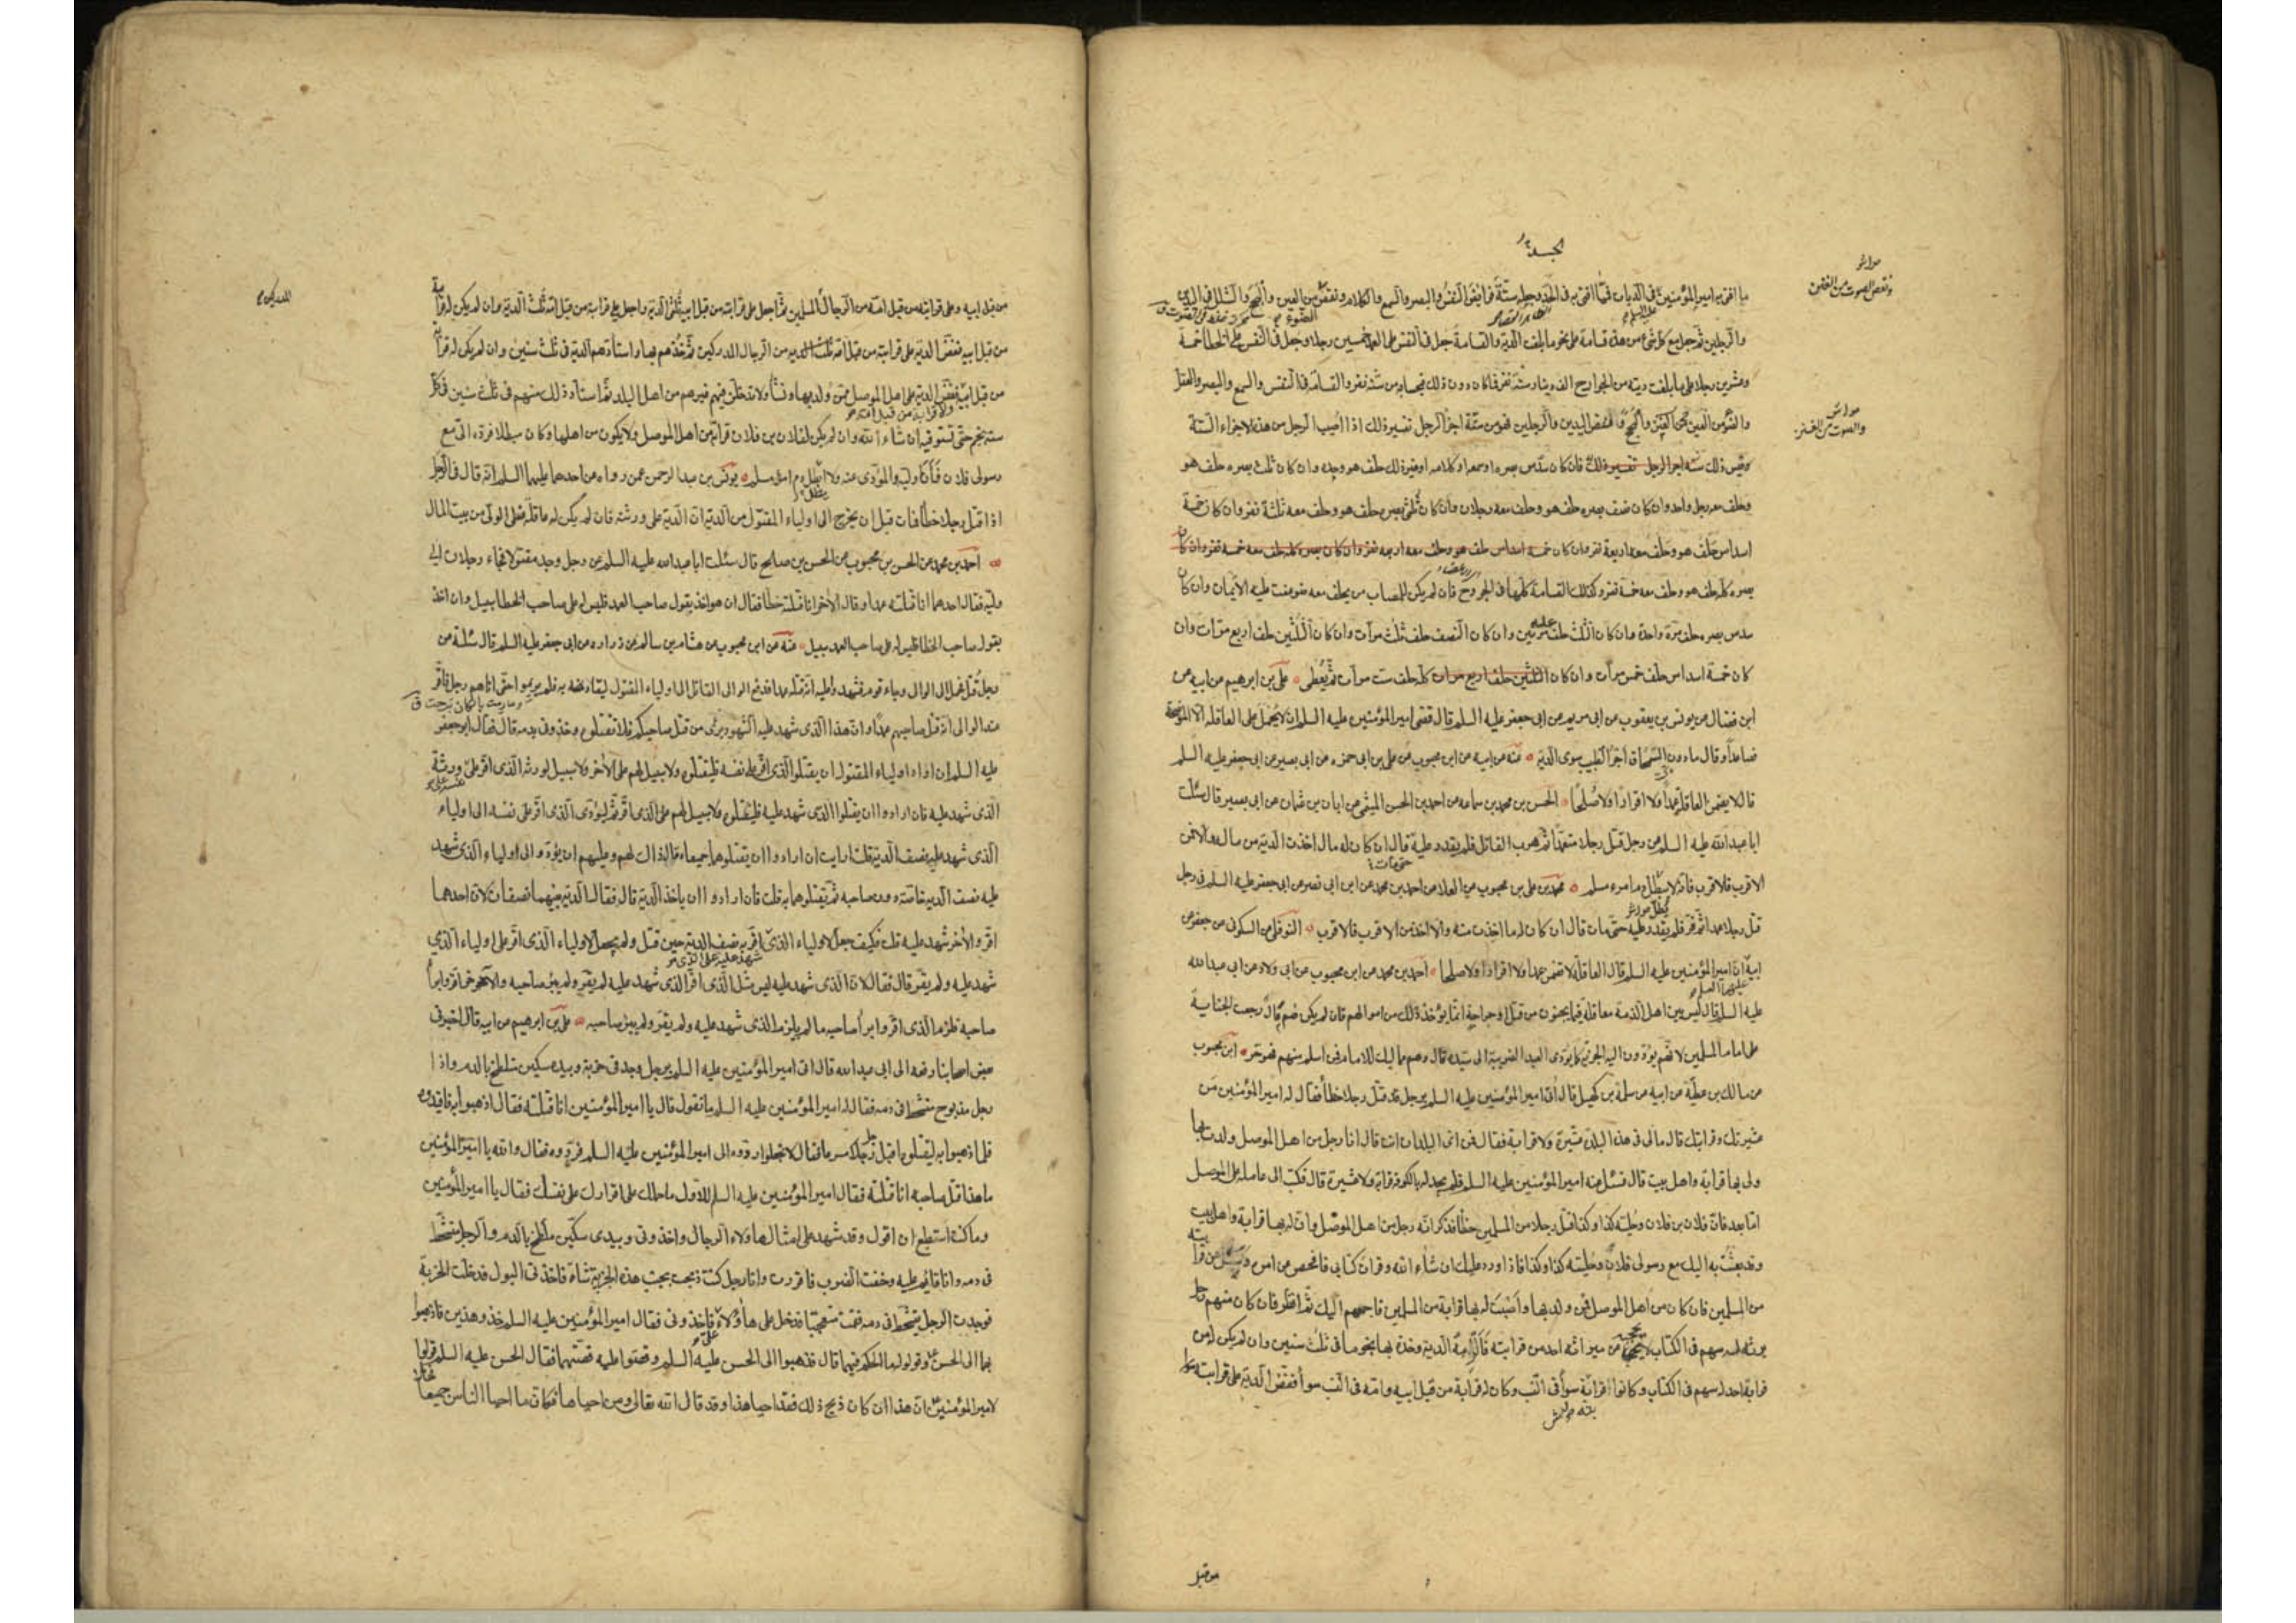 الجسد
ما افتى به امير المؤمنين في الديات فمما افتى به في الجسد وجعله ستة فرايض النفس والبصر والسمع والكلام ونقص من العين والبحح والشلل في اليدين
والرجلين ثم جعل مع كل شئ من هذه قسامة على نحو ما بلغت الدية والقسامة جعل في النفس على العمد خمسين رجلا وجعل في النفس على الخطأ خمسة
وعشرين رجلا وعلى ما بلغت ديته من الجوارح الف دينار ستة نفر فما كان دون ذلك فبحسابه من ستة نفر والقسامة في النفس والسمع والبصر والعقل
والضوء من العين والبحح ونقص اليدين والرجلين فهو من ستة اجزاء الرجل تفسير ذلك اذا اصيب الرجل من هذه الاجزاء الستة
وقيس ذلك فان كان سدس بصره او سمعه او كلامه او غير ذلك حلف هو وحده وان كان ثلث بصره حلف هو
وحلف معه رجل واحد وان كان نصف بصره حلف هو وحلف معه رجلان وان كان ثلثي بصره حلف هو وحلف معه ثلثة نفر وان كان خمسة
اسداس حلف هو وحلف معه اربعة نفر وان كان
بصره كله حلف هو وحلف معه خمسة نفر وكذلك القسامة كلها في الجروح فان لم يكن للمصاب من يحلف معه ضوعفت عليه الايمان وان كان
سدس بصره حلف مرة واحدة وان كان الثلث حلف مرتين وان كان النصف حلف ثلث مرات وان كان الثلثين حلف اربع مرات وان
كان خمسة اسداس حلف خمس مرات وان كان كله حلف ست مرات ثم يعطى علي بن ابرهيم من ابيه عن
ابن فضال عن يونس بن يعقوب عن ابي مريم عن ابي جعفر عليه السلم قال قضى امير المؤمنين عليه السلم ان لا يحمل على العاقلة الا الموضحة
فصاعدا وقال ما دون السمحاق اجر الطبيب سوى الدية عنه عن ابيه عن ابن محبوب عن علي بن ابي حمزه عن ابي بصير عن ابي جعفر عليه السلم
قال لا يضمن العاقلة عمدا ولا اقرارا ولا صلحا الحسن بن محمد بن سماعه عن احمد بن الحسن الميثمي عن ابان بن عثمان عن ابي بصير قال سئلت
ابا عبدالله عليه السلم عن رجل قتل رجلا متعمدا ثم هرب القاتل فلم يقدر عليه قال ان كان له مال اخذت الدية من ماله والا فمن
الاقرب فالاقرب فانه لا يبطل دم امرء مسلم محمد بن علي بن محبوب عن العلا عن احمد بن محمد عن ابن ابي نصر عن ابي جعفر عليه السلم في رجل
قتل رجلا عمدا ثم فر فلم يقدر عليه حتى مات قال ان كان له مال اخذت منه والا اخذ من الاقرب فالاقرب النوفلي عن السكوني عن جعفر عن
ابيه ان امير المؤمنين عليه السلم قال العاقلة لا تضمن عمدا ولا اقرارا ولا صلحا احمد بن محمد عن ابن محبوب عن ابي ولاد عن ابي عبدالله
عليه السلم قال ليس بين اهل الذمة معاقلة فيما يجنون من قتل او جراحة انما يؤخذ ذلك من اموالهم فان لم يكن لهم مال رجعت الجناية
على امام المسلمين لانهم يؤدون اليه الجزية كما يؤدى العبد الضريبة الى سيده قال وهم مماليك للامام فمن اسلم منهم فهو حر ابن محبوب
عن مالك بن عطية عن ابيه عن سلمة بن كهيل قال اتى امير المؤمنين عليه السلم برجل قد قتل رجلا خطأ فقال له امير المؤمنين من
عشيرتك وقرابتك قال مالي في هذه البلدة عشيرة ولا قرابة فقال فمن اي البلدان انت قال انا رجل من اهل الموصل ولدت بها
ولي بها قرابة واهل بيت قال فسئل عنه امير المؤمنين عليه السلم فلم يجد له بالكوفة قرابة ولا عشيرة قال فكتب الى عامله على الموصل
اما بعد فان فلان بن فلان وحليته كذا وكذا قتل رجلا من المسلمين خطأ فذكر انه رجل من اهل الموصل وان له بها قرابة واهل بيت
وقد بعثت به اليك مع رسولي فلان وحليته كذا وكذا فاذا ورد عليك ان شاء الله وقرات كتابي فافحص عن امره وسل عن قرابته
من المسلمين فان كان من اهل الموصل ممن ولد بها واصبت له بها قرابة من المسلمين فاجمعهم اليك ثم انظر فان كان منهم رجل
يرثه له سهم في الكتاب لا يحجبه عن ميراثه احد من قرابته فالزمه الدية وخذه بها نجوما في ثلث سنين وان لم يكن له من
قرابته احد له سهم في الكتاب وكانوا قرابته سوا في النسب وكان له قرابة من قبل ابيه وامه في النسب سوا ففض الدية على قرابته
من قبل
من قبل ابيه وعلى قرابته من قبل امه من الرجال المسلمين ثم اجعل على قرابته من قبل ابيه ثلثي الدية واجعل على قرابته من قبل امه ثلث الدية وان لم يكن له قرابة
من قبل ابيه ففض الدية على قرابته من قبل امه من الرجال المدركين ثم خذهم بها واستأدهم الدية في ثلث سنين وان لم يكن له قرابة
من قبل ابيه ففض الدية على اهل الموصل ممن ولد بها ونشأ ولا تدخلن فيهم غيرهم من اهل البلد ثم استأد ذلك منهم في ثلث سنين في كل
سنة نجم حتى تستوفيه ان شاء الله وان لم يكن لفلان بن فلان قرابة من اهل الموصل ولا يكون من اهلها وكان مبطلا فرده الي مع
رسولي فلان فانا وليه والمؤدى عنه ولا ابطل دم امرئ مسلم يونس بن عبد الرحمن عمن رواه عن احدهما عليهما السلم انه قال في الرجل
اذا قتل رجلا خطأ فمات قبل ان يخرج الى اولياء المقتول من الدية ان الدية على ورثته فان لم يكن له عاقلة فعلى الوالي من بيت المال
احمد بن محمد عن الحسن بن محبوب عن الحسن بن صالح قال سئلت ابا عبدالله عليه السلم عن رجل وجد مقتولا فجاء رجلان الى
وليه فقال احدهما انا قتلته عمدا وقال الاخر انا قتلته خطأ فقال ان هو اخذ بقول صاحب العمد فليس له على صاحب الخطا سبيل وان اخذ
بقول صاحب الخطا فليس له على صاحب العمد سبيل عنه عن ابن محبوب عن هشام بن سالم عن زراره عن ابي جعفر عليه السلم قال سئلته عن
رجل قتل فحمل الى الوالي وجاء قوم فشهدوا عليه انه قتله عمدا فدفع الوالي القاتل الى اولياء المقتول ليقاد به فلم يريموا حتى اتاهم رجل فاقر
عند الوالي انه قتل صاحبهم عمدا وان هذا الذي شهد عليه الشهود بريء من قتل صاحبكم فلا تقتلوه وخذوني بدمه قال فقال ابو جعفر
عليه السلم ان اراد اولياء المقتول ان يقتلوا الذي اقر على نفسه فليقتلوه ولا سبيل لهم على الاخر ولا سبيل لورثة الذي اقر على ورثة
الذي شهد عليه فان ارادوا ان يقتلوا الذي شهد عليه فليقتلوه ولا سبيل لهم على الذي اقر ثم ليؤدى الذي اقر على نفسه الى اولياء
الذي شهد عليه نصف الدية قلت ارايت ان ارادوا ان يقتلوهما جميعا قال ذاك لهم وعليهم ان يؤدوا الى اولياء الذي شهد
عليه نصف الدية خاصة دون صاحبه ثم يقتلوهما به قلت فان ارادوا ان ياخذوا الدية قال فقال الدية بينهما نصفان لان احدهما
اقر والاخر شهد عليه قلت فكيف جعل لاولياء الذي اقر به نصف الدية حين قتل ولم يجعل لاولياء الذي اقر على اولياء الذي
شهد عليه ولم يقر قال فقال لان الذي شهد عليه ليس مثل الذي اقر الذي شهد عليه لم يقر ولم يبرئ صاحبه والاخر اقر وابرأ
صاحبه فلزم الذي اقر وابرأ صاحبه ما لم يلزم الذي شهد عليه ولم يقر ولم يبرئ صاحبه علي بن ابرهيم عن ابيه قال اخبرني
بعض اصحابنا رفعه الى ابي عبدالله قال اتى امير المؤمنين عليه السلم برجل وجد في خربة وبيده سكين متلطخ بالدم واذا
رجل مذبوح متشحط في دمه فقال له امير المؤمنين عليه السلم ما تقول قال يا امير المؤمنين انا قتلته فقال اذهبوا به فاقيدوه
فلما ذهبوا به ليقتلوه اقبل رجل مسرعا فقال لا تعجلوا ردوه الى امير المؤمنين عليه السلم فردوه فقال والله يا امير المؤمنين
ما هذا قتل صاحبه انا قتلته فقال امير المؤمنين عليه السلم للاول ما حملك على اقرارك على نفسك فقال يا امير المؤمنين
وما كنت استطيع ان اقول وقد شهد على امثال هاؤلاء الرجال واخذوني وبيدى سكين ملطخ بالدم والرجل متشحط
في دمه وانا قائم عليه وخفت الضرب فاقررت وانا رجل كنت ذبحت بجنب هذه الخربة شاة فاخذني البول فدخلت الخربة
فوجدت الرجل يتشحط في دمه فقمت متعجبا فدخل على هاؤلاء فاخذوني فقال امير المؤمنين عليه السلم خذوا هذين فاذهبوا
بهما الى الحسن وقولوا له ما الحكم فيهما قال فذهبوا الى الحسن عليه السلم وقصوا عليه قصتهما فقال الحسن عليه السلم قولوا
لامير المؤمنين ان هذا ان كان ذبح ذلك فقد احيا هذا وقد قال الله تعالى ومن احياها فكانما احيا الناس جميعا